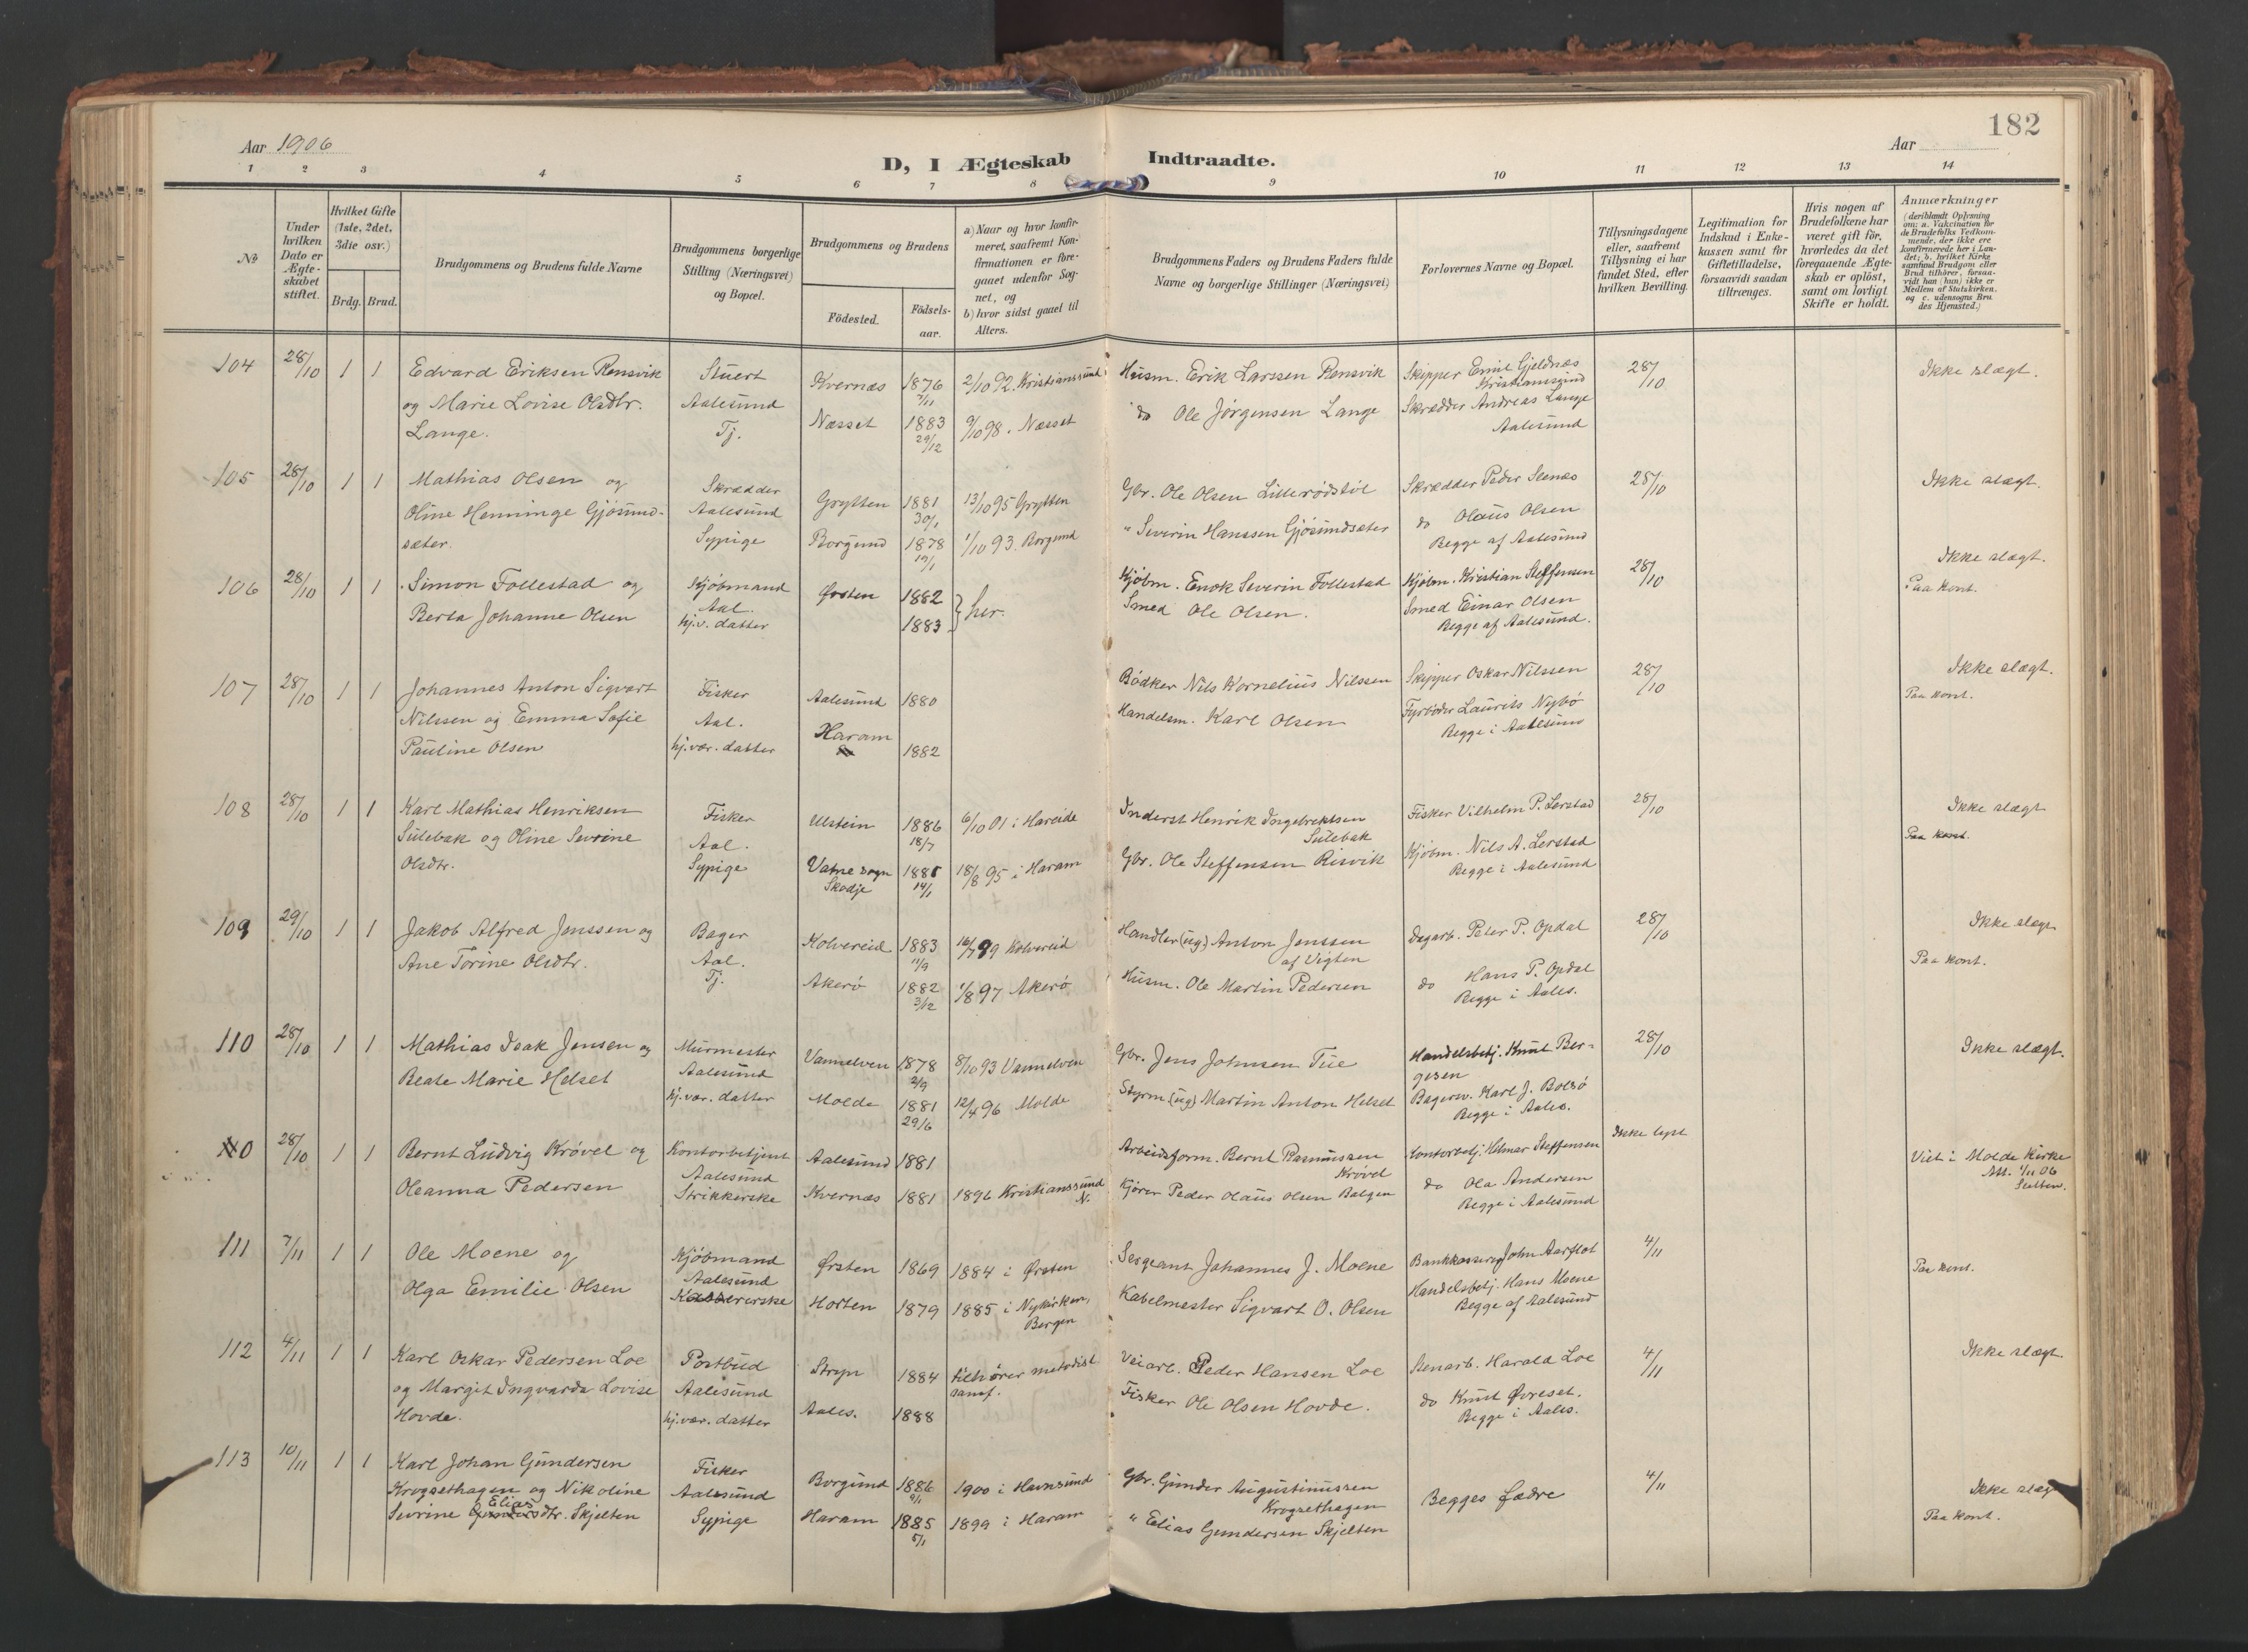 182
Aar 1906
D, I Ægteskab Indtraadte.
Aar
1 2 3 4 5 6 7 8 9 10 11 12 13 14
No
Under hvilken Dato er Ægteskabet stiftet.
Hvilket Gifte (1ste, 2det, 3die osv.)
Brdg. Brud.
Brudgommens og Brudens fulde Navne
Brudgommens borgerlige Stilling (Næringsvei) og Bopæl.
Brudgommens og Brudens
Födested.
Födselsaar.
a) Naar og hvor konfirmeret, saafremt Konfirmationen er foregaaet udenfor Sognet, og
b) hvor sidst gaaet til Alters.
Brudgommens Faders og Brudens Faders fulde Navne og borgerlige Stillinger (Næringsvei)
Forlovernes Navne og Bopæl.
Tillysningsdagene eller, saafremt Tillysning ei har fundet Sted, efter hvilken Bevilling.
Legitimation for Indskud i Enkekassen samt for Giftetilladelse, forsaavidt saadan tiltrænges.
Hvis nogen af Brudefolkene har været gift för, hvorledes da det foregaaende Ægteskab er oplöst, samt om lovligt Skifte er holdt.
Anmærkninger
(deriblandt Oplysning om: a. Vakcination för de Brudefolks Vedkommende, der ikke ere konfirmerede her i Landet; b. hvilket Kirkesamfund Brudgom eller Brud tilhörer, forsaavidt han (hun) ikke er Medlem af Statskirken. og c. udensogns Brudes Hjemsted.)
104 28/10 1 1 Edvard Eriksen Rensvik Stuert Kvernæs 1876 7/11 2/10 92. Kristianssund Husm. Erik Larssen Rensvik Skipper Emil Gjeldnæs 28/10 Ikke slægt.
Kristianssund
og Marie Lovise Olsdtr. Aalesund Næsset 1883 29/12 9/10 98. Næsset do Ole Jørgensen Lange Skrædder Andreas Lange
Lange. Tj. Aalesund
105 28/10 1 1 Mathias Olsen og Skrædder Grytten 1881 30/1 13/10 95 Grytten Gbr. Ole Olsen Lillerødstøl Skrædder Peder 28/10 Ikke slægt.
Oline Henninge Gjøsund- Aalesund do Olaus Olsen
sæter. Sypige Borgund 1878 19/1 1/10 93. Borgund " Severin Hanssen Gjøsundsæter Begge af Aalesund
106 28/10 1 1 Simon Follestad og Kjøbmand Ørsten 1882 } her. Kjøbm. Enok Severin Follestad Kjøbm. Kristian Steffensen 28/10 Ikke slægt.
Berta Johanne Olsen Aal. 1883 Smed Ole Olsen. Smed Einar Olsen Paa Kont.
hj.v. datter Begge af Aalesund.
107 28/10 1 1 Johannes Anton Sigvart Fisker Aalesund 1880 Bødker Nils Kornelius Nilssen Skipper Oskar Nilssen 28/10 Ikke slægt.
Nilssen og Emma Sofie Aal. Haram Handelsm. Karl Olsen Fyrbøder Laurits Nybø Paa Kont.
Pauline Olsen hj.vær. datter 1882 Begge i Aalesund
108 28/10 1 1 Karl Mathias Henriksen Fisker Ulstein 1886 18/7 6/10 01 i Hareide Inderst Henrik Ingebrektsen Fisker Vilhelm P. Lerstad 28/10 Ikke slægt
Sulebak og Oline Sevrine Aal. Sulebak Kjøbm. Nils A. Lerstad Paa kont.
Olsdtr. Sypige Vatne sogn 14/1 18/8 95 i Haram Gbr. Ole Steffensen Risvik Begge i Aalesund
Skodje
109 29/10 1 1 Jakob Alfred Jenssen og Bager Kolvereid 1883 11/9 Kolvereid Handler (ug) Anton Jenssen Dagarb. Peter P. Opdal 28/10 Ikke slægt
Ane Torine Olsdtr. Aal. af Vigten Paa Kont.
Tj. Akerø 1882 3/12 1/8 97 Akerø Husm. Ole Martin Pedersen do Hans P. Opdal
Begge i Aales.
110 28/10 1 1 Mathias Isak Jensen og Murmester Vannelven 1878 2/9 8/10 93 Vannelven Gbr. Jens Johnsen Tue Handelsbetj. Knut Ber- 28/10 Ikke slægt.
gesen
Beate Marie Helset Aalesund
hj.vær. datter Molde 1881 29/6 12/4 96 Molde Styrm (ug) Martin Anton Helset Bagersv. Karl J. Bolsø
Begge i Aales.
0 28/10 1 1 Bernt Ludvig Krøvel og Kontorbetjent Aalesund 1881 Arbeidsform. Bernt Rasmussen Kontorbetj. Hilmar Steffensen Ikke lyst Viet i Molde Kirke
Aalesund Krøvel Att. 1/11 06
Oleanna Pedersen Strikkerske Kvernæs 1881 1896 Kristianssund N. Kjører Peder Olaus Olsen Balgen do Ola Andersen
Begge i Aalesund
111 7/11 1 1 Ole Moene og Kjøbmand Ørsten 1869 1884 i Ørsten Sergeant Johannes J. Moene Bankkasserer John Aarflot 4/11 Paa Kont.
Aalesund
Olga Emilie Olsen Kassererske Horten 1879 1885 i Nykirken, Kabelmester Sigvart O. Olsen Handelsbetj. Hans Moene
Bergen Begge af Aalesund
112 4/11 1 1 Karl Oskar Pedersen Loe Postbud Stryn 1884 tilhører metodist Veiarb. Peder Hansen Loe Stenarb. Harald Loe 4/11 Ikke slægt.
samf.
og Margit Ingvarda Lovise Aalesund Fisker Ole Olsen Hovde. do Knut Øvreset.
Hovde. hj.vær. datter Aales. 1888 Begge i Aales.
113 10/11 1 1 Karl Johan Gundersen Fisker Borgund 1886 9/11 1900 i Havnsund Gbr. Gunder Augustinussen Begges fædre 4/11 Ikke slægt
Krogsethagen og Nikoline Aalesund Krogsethagen
Elias
Sevrine Gundersdtr. Skjelten Sypige Haram 1885 5/1 1899 i Haram " Elias Gundersen Skjelten Paa Kont.